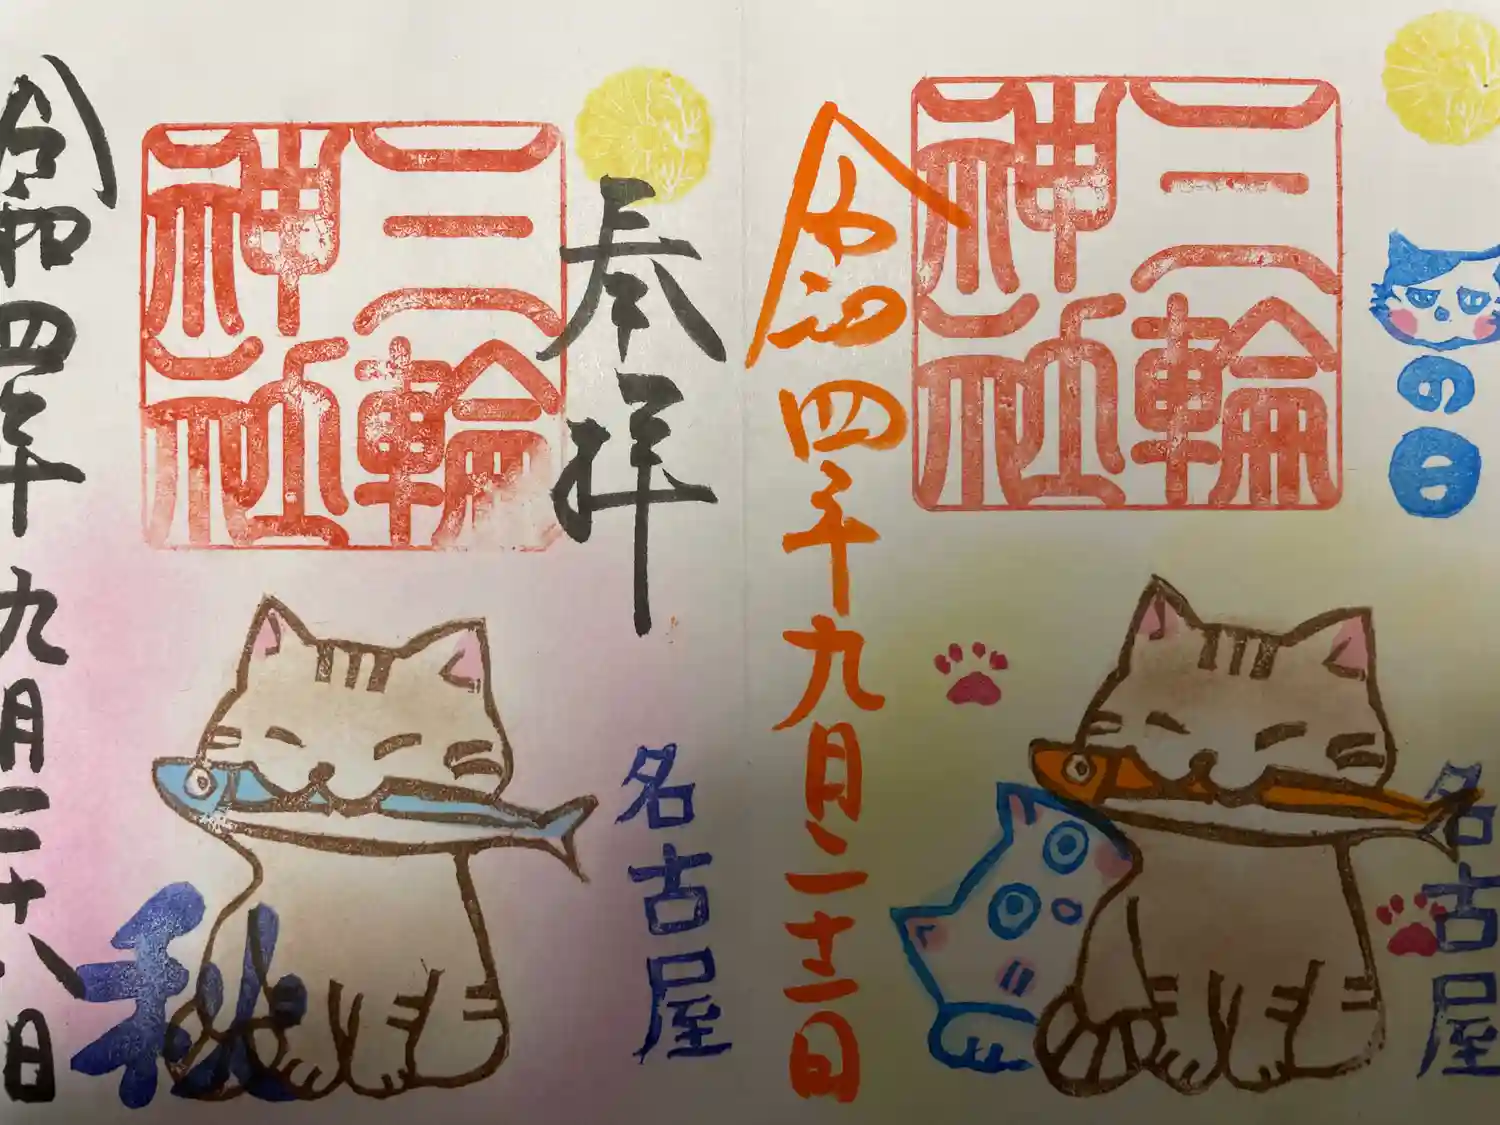 の日
三輪
神社
名古屋
令和四年九月二十二日
奉拝
三輪
神社
名古屋
秋
令和四年九月二十八日